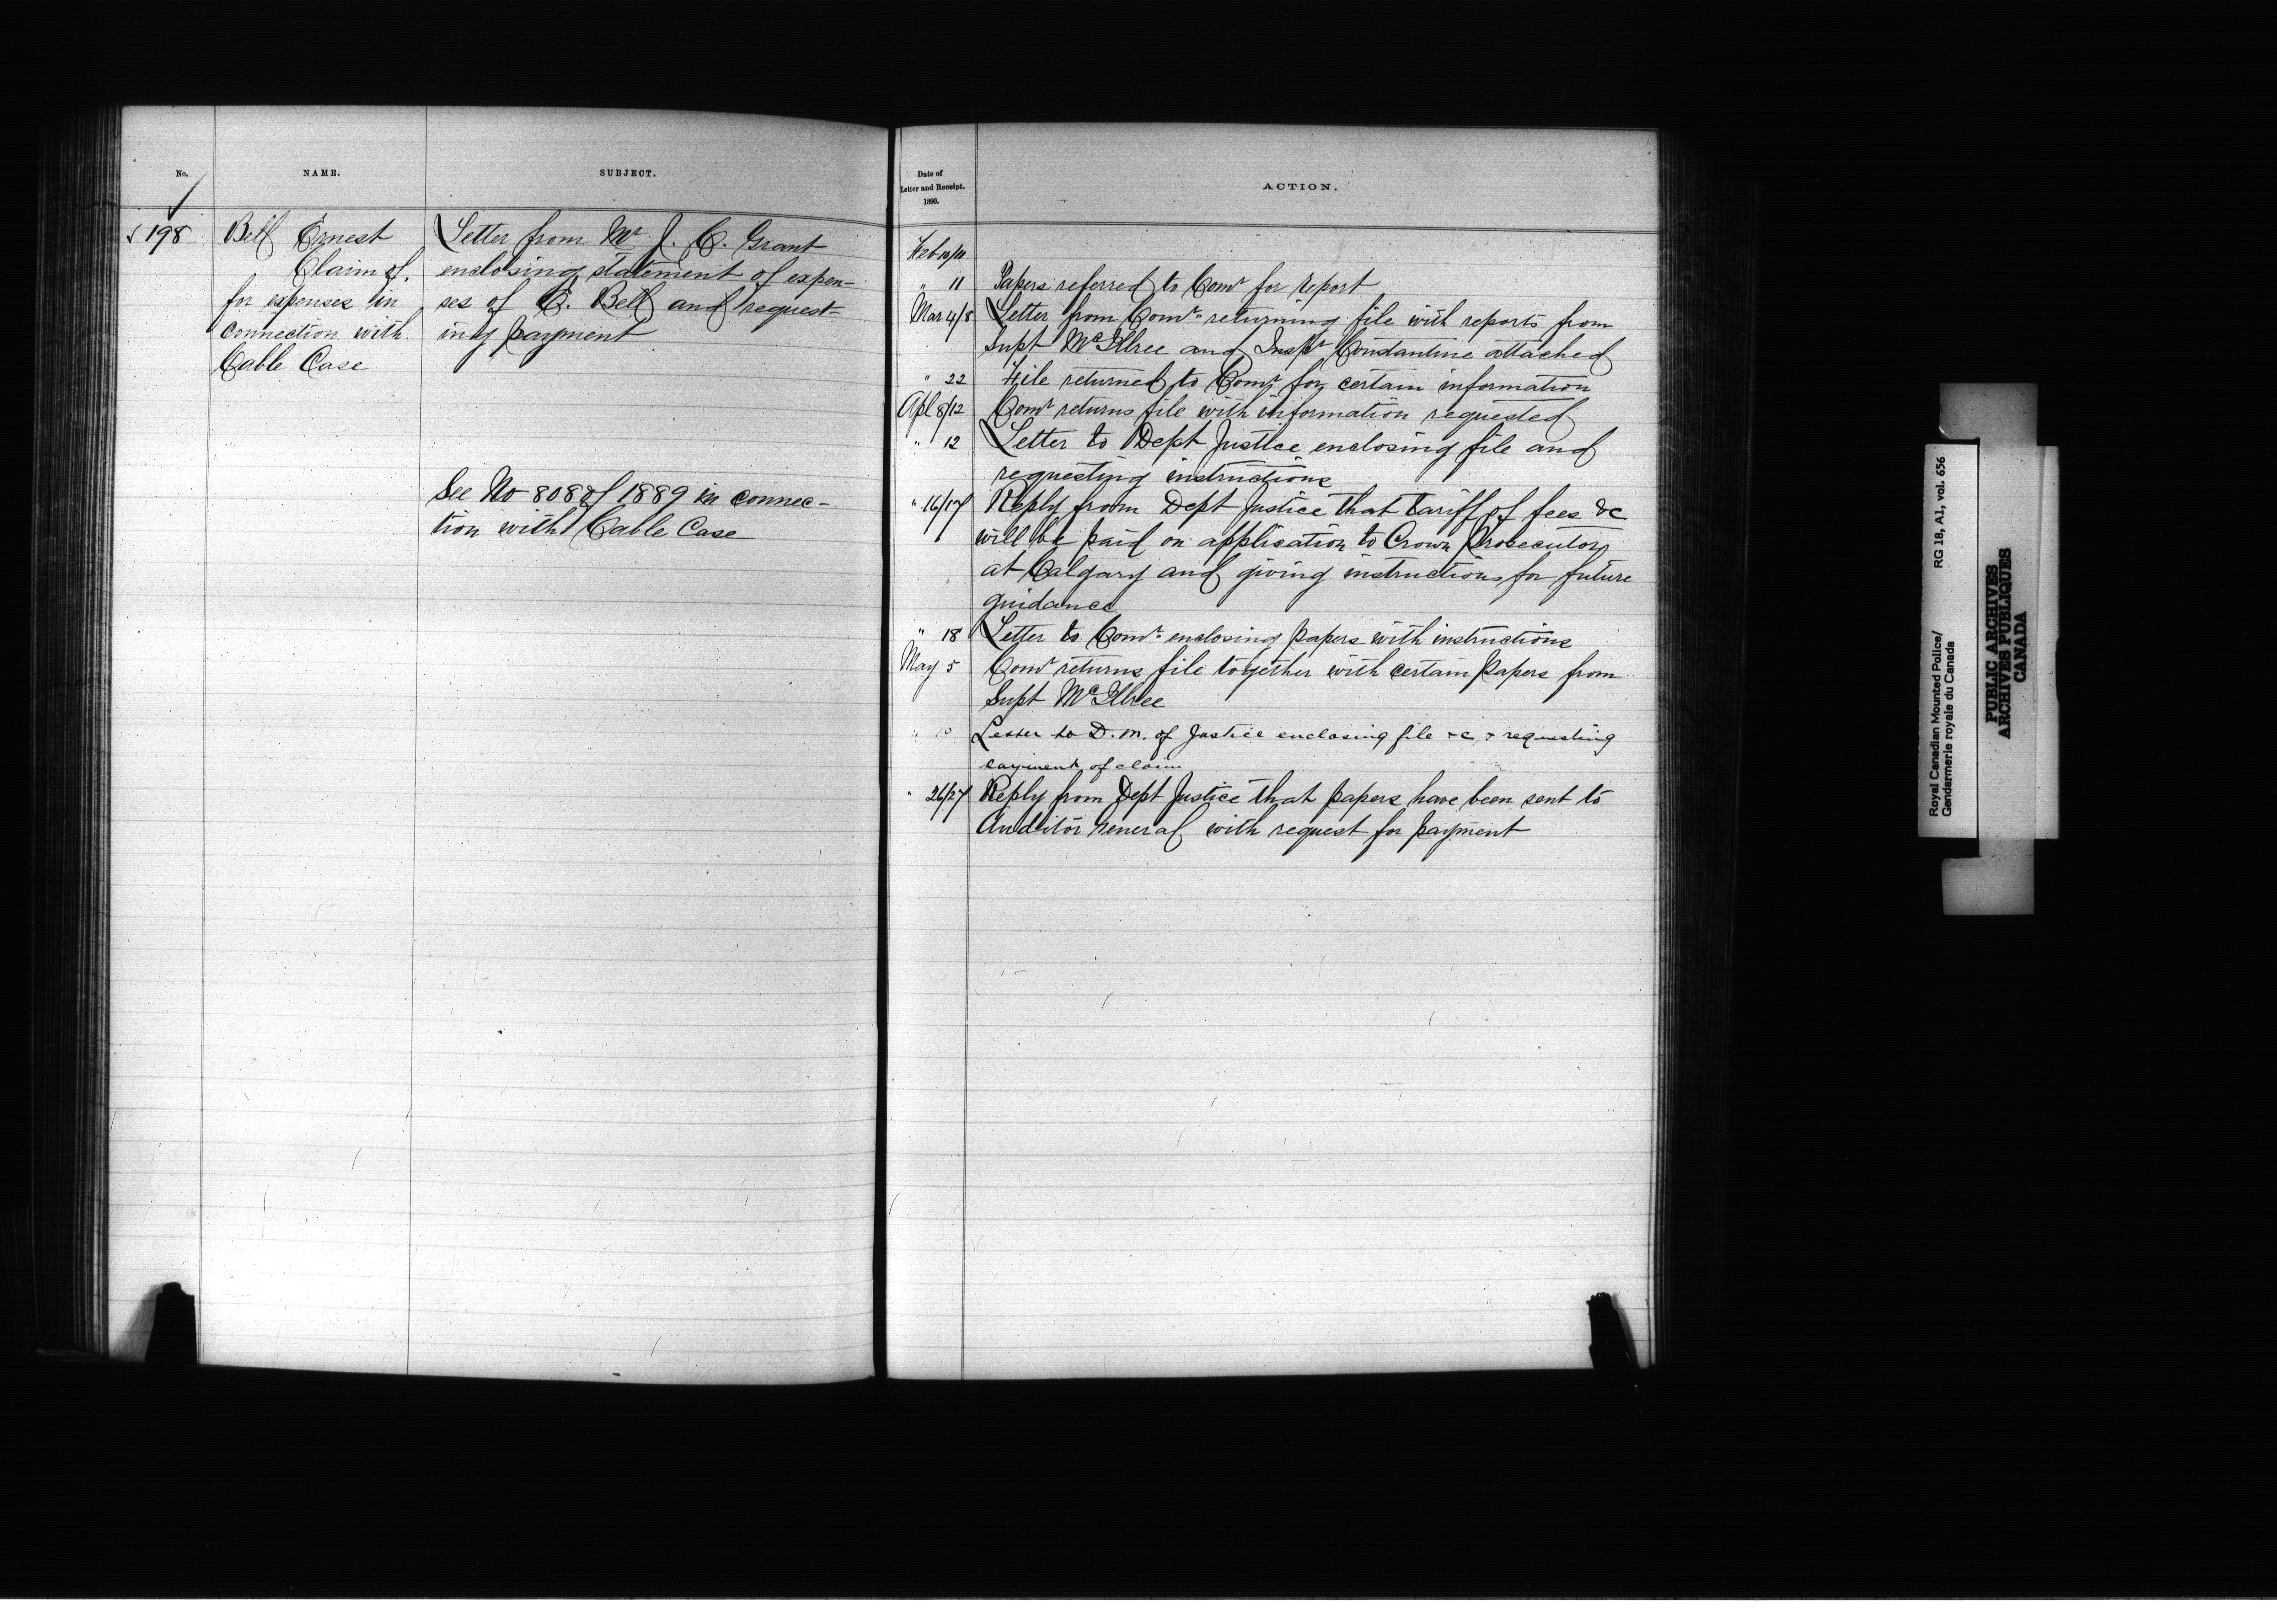 No.
NAME.
SUBJECT.
198
Bell Ernest
Claim of,
for expenses in
connection with
Cable Case
Letter from Mr J. C. Grant
enclosing statement of expen-
ses of E. Bell and request-
ing payment
See No 808 of 1889 in connec-
tion with Cable Case
Date of
Letter and Receipt.
1890.
ACTION.
Feb 10/11
" 11 Papers referred to Comr for report
Mar 4/8 Letter from Comr returning file with reports from
Supt McIllree and Inspr Constantine attached
" 22 File returned to Comr for certain information
Apl 8/12 Comr returns file with information requested
" 12 Letter to Dept Justice enclosing file and
requesting instructions
" 16/17 Reply from Dept Justice that tariff of fees &c
will be paid on application to Crown Prosecutor
at Calgary and giving instructions for future
guidance
" 18 Letter to Comr enclosing papers with instructions
May 5 Comr returns file together with certain papers from
Supt McIllree
" 10 Letter to D. M. of Justice enclosing file &c & requesting
payment of claim
" 26/27 Reply from Dept Justice that papers have been sent to
Auditor General with request for payment
Royal Canadian Mounted Police/
Gendarmerie royale du Canada
RG 18, A1, vol. 656
PUBLIC ARCHIVES
ARCHIVES PUBLIQUES
CANADA